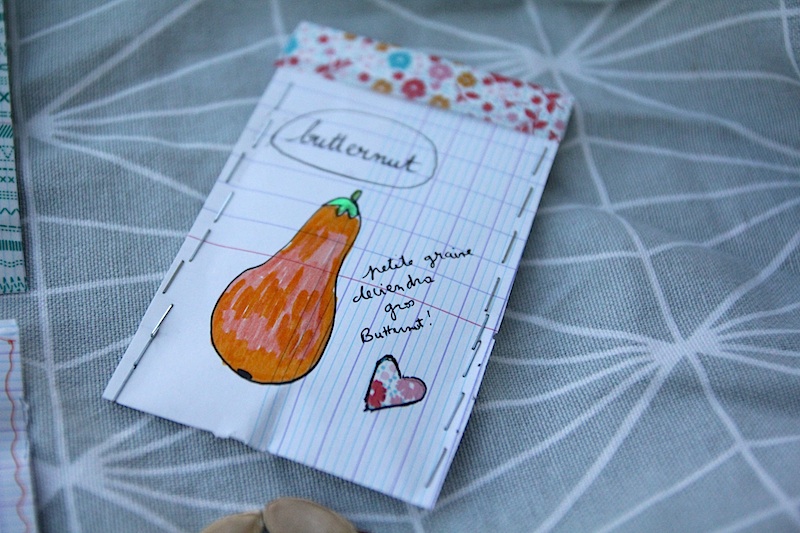 butternut
petite graine
deviendra
gros
Butternut!